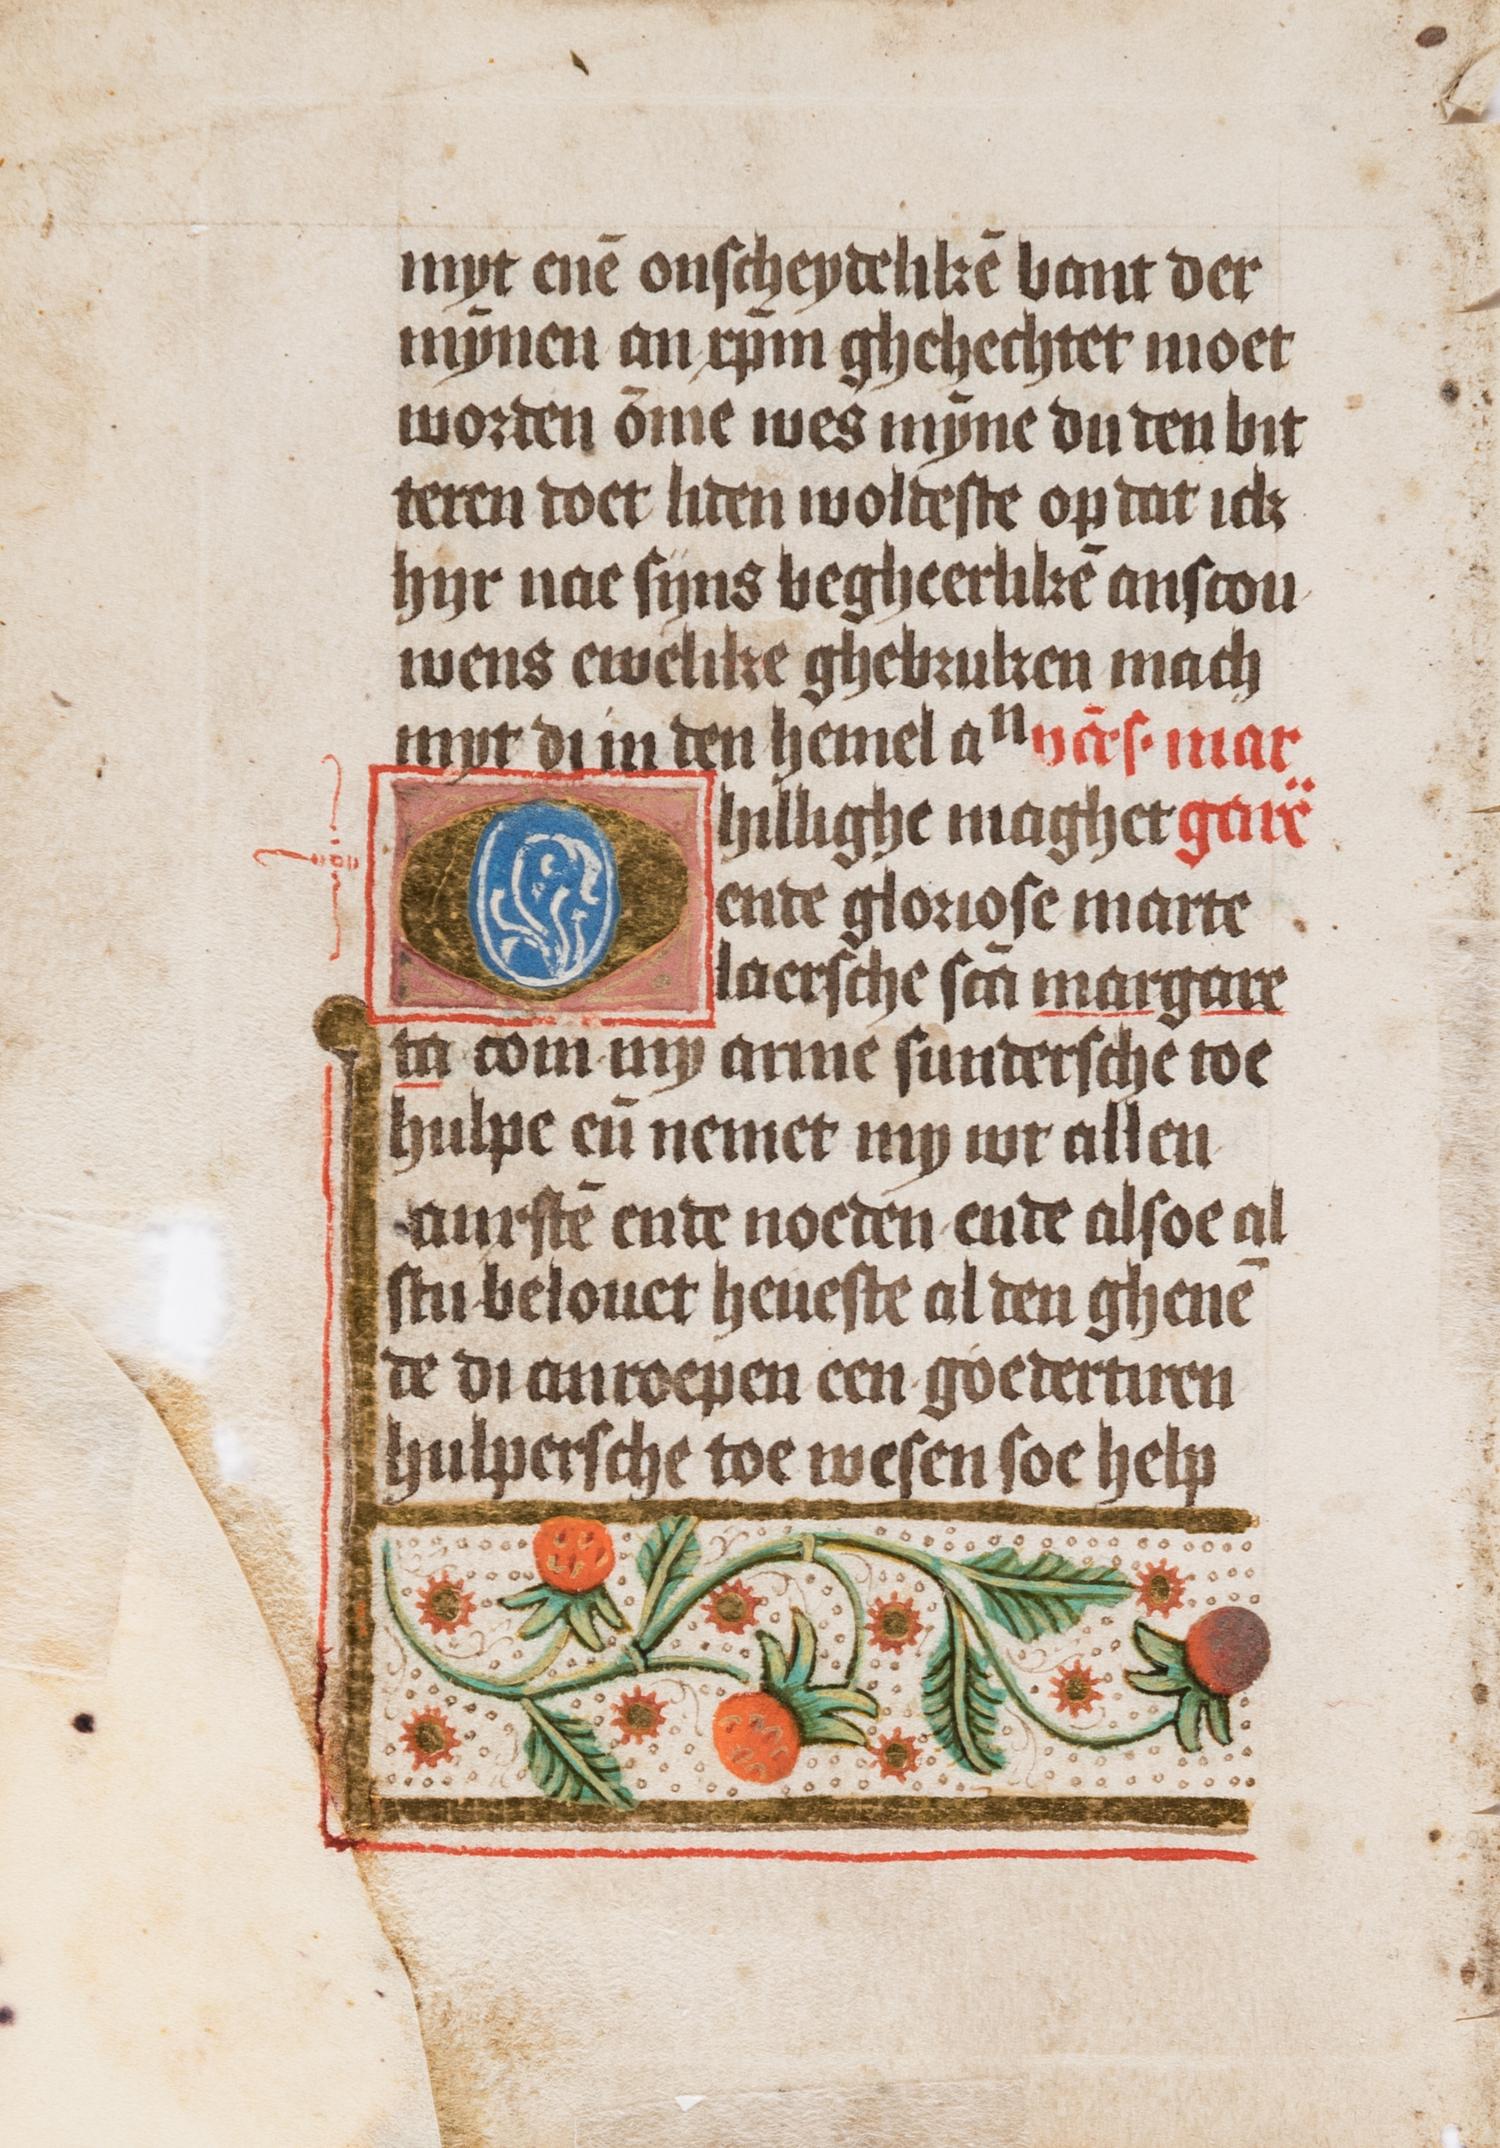 myt enē onscheydelikē bant der
mȳnen an xp̄m ghehechtet moet
worden ōme wes mȳne du den bit
teren doet liden woldeste op dat ick
hyr nae sijns begheerlikē anscou
wens ewelike ghebruken mach
myt di in den hemel an mar
O hillighe maghet garē
ende gloriose marte
laersche sc̄a margare
ta com my arme sundersche toe
hulpe en̄ nemet my wt allen
anxstē ende noeden ende alsoe al
stu belouet heueste al den ghenē
de di anroepen een goedertiren
hulpersche toe wesen soe help